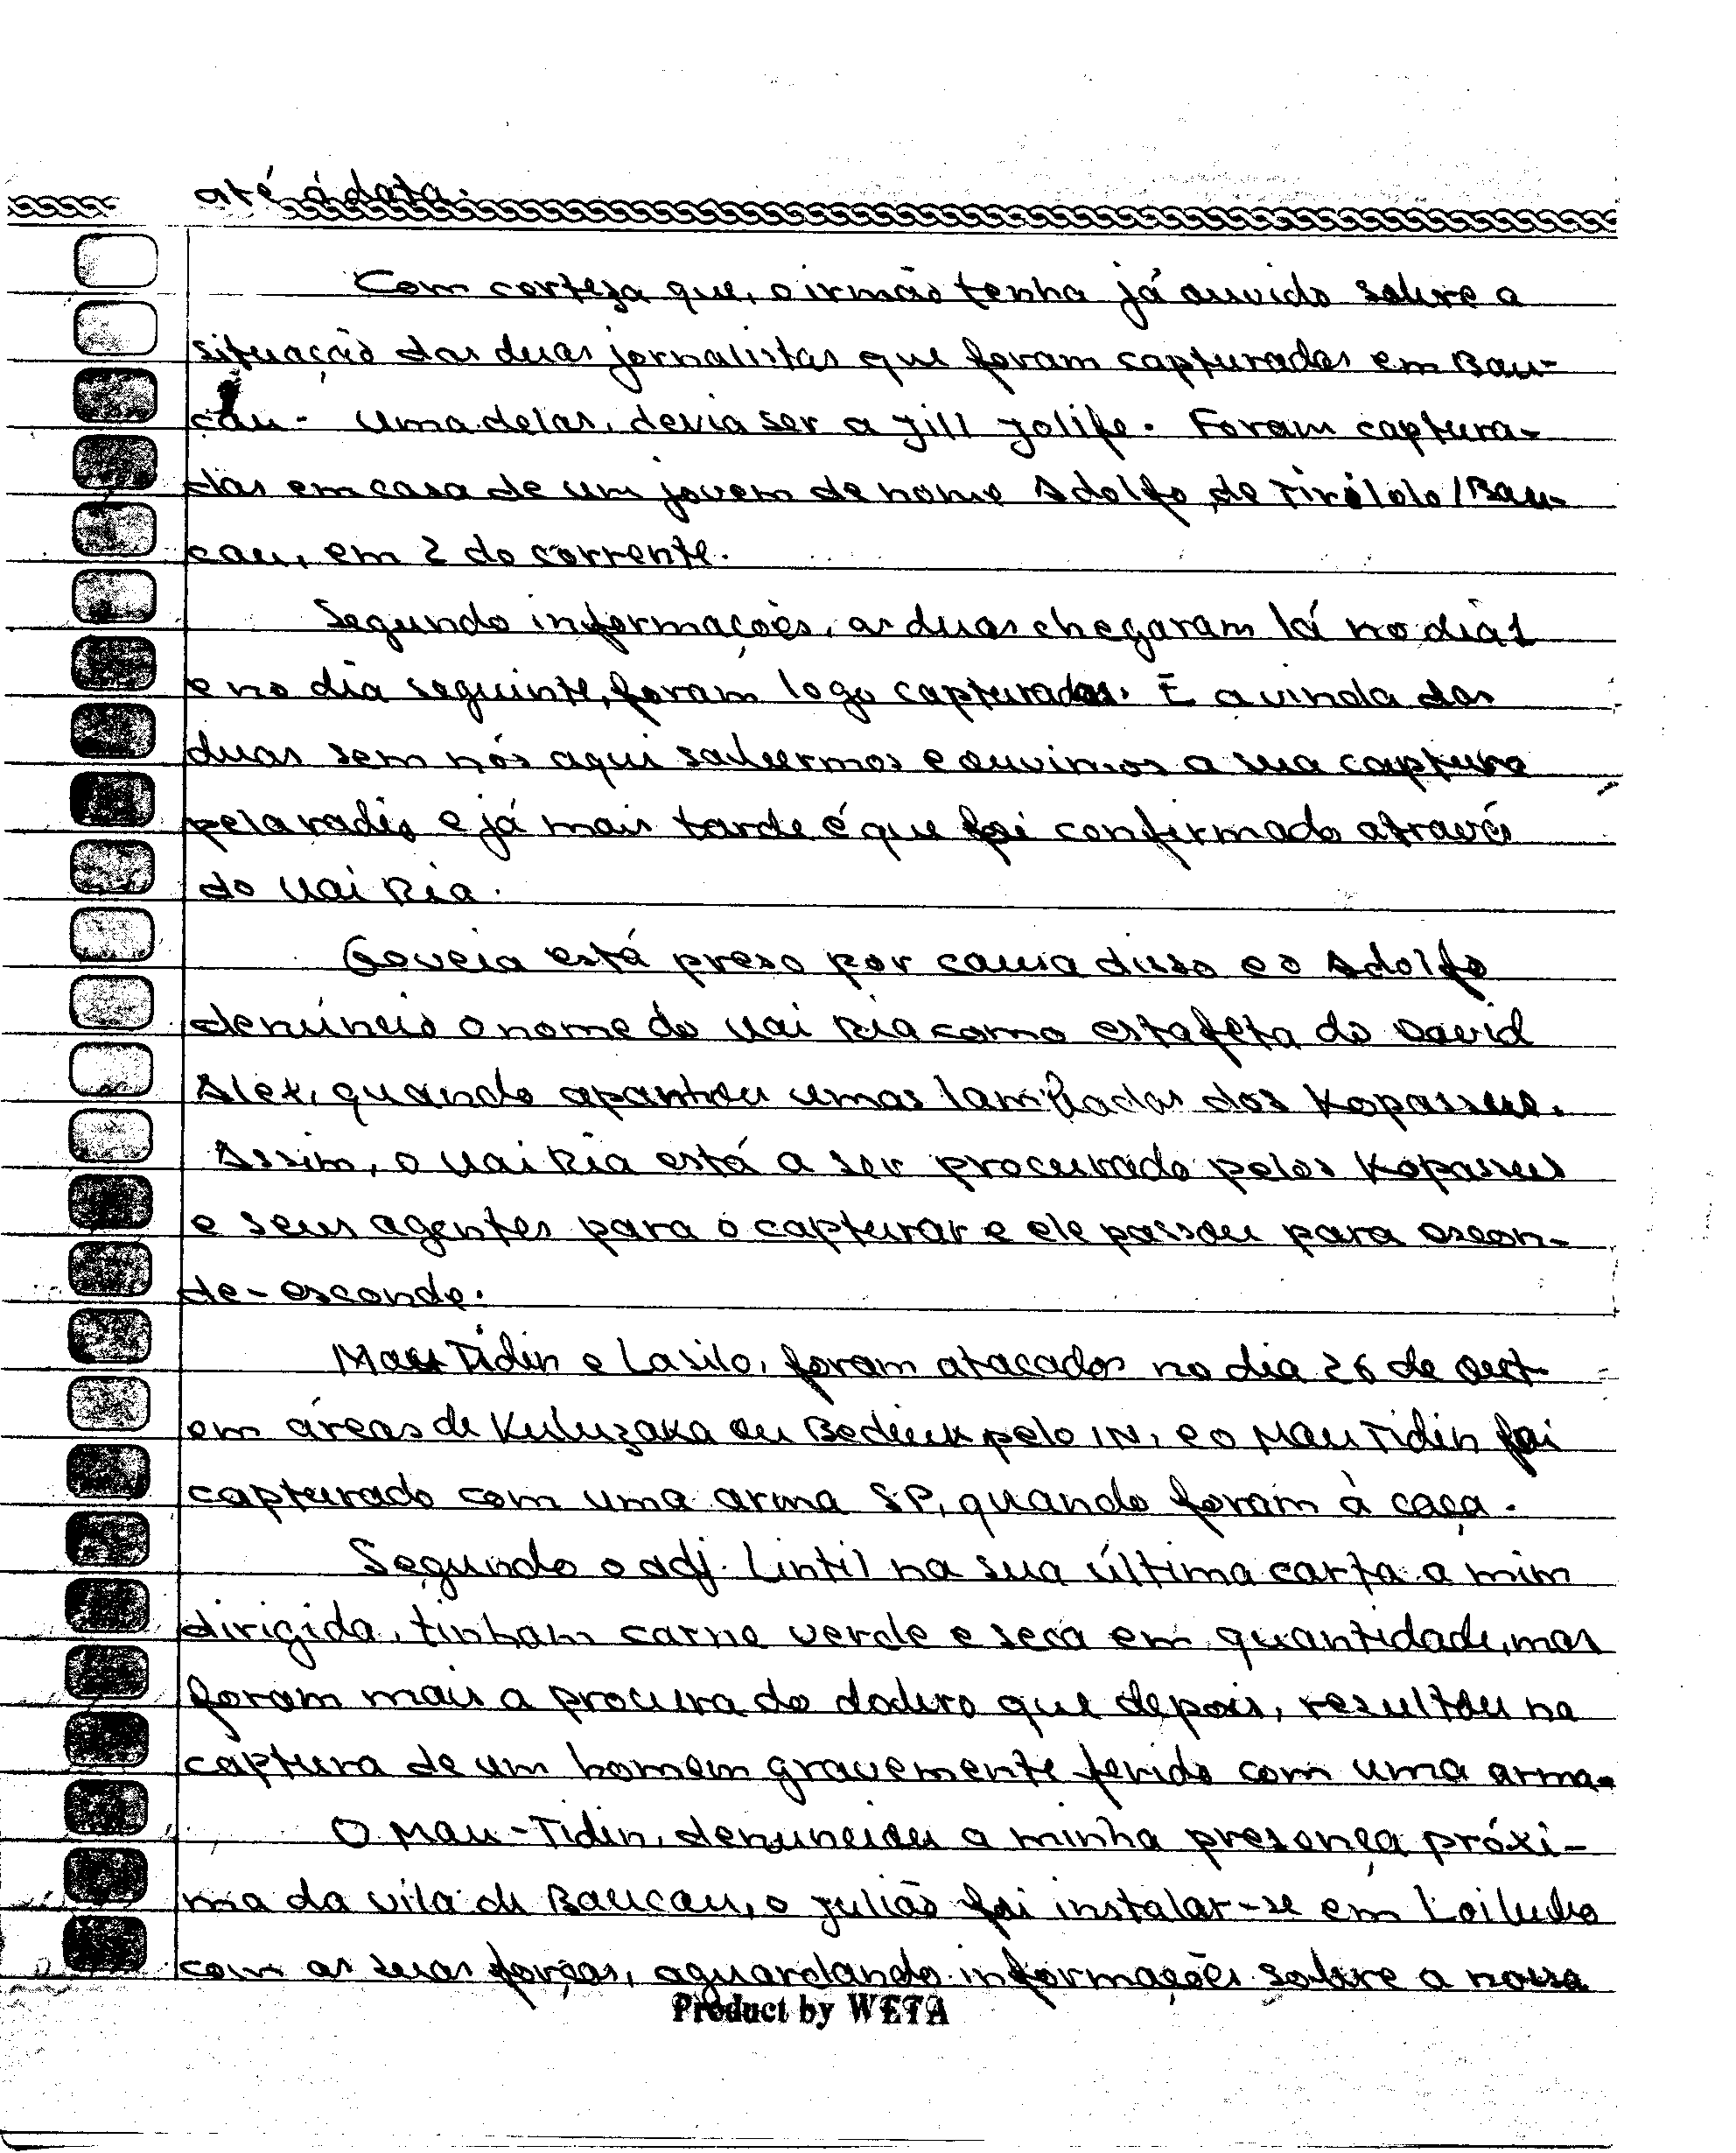 até à data.
Com certeza que, o irmão tenha já ouvido sobre a
situação das duas jornalistas que foram capturadas em Bau-
cau. Uma delas, devia ser a Jill Jolife. Foram captura-
das em casa de um jovem de nome Adolfo, de Tirilolo/Bau-
cau, em 2 do corrente.
Segundo informações, as duas chegaram lá no dia 1
e no dia seguinte, foram logo capturadas. E a vinda das
duas sem nós aqui sabermos e ouvimos a sua captura
pela rádio e já mais tarde é que foi confirmado através
do Uai Ria.
Goveia está preso por causa disso e o Adolfo
denúncio o nome do Uai Ria como estafeta do David
Alex, quando apanhou umas lambadas dos Kopassus.
Assim, o Uai Ria está a ser procurado pelos Kopassus
e seus agentes para o capturar e ele passou para escon-
de-esconde.
Mau Tidin e Lasilo, foram atacados no dia 26 de Out.
em áreas de Kuluzaka ou pelo IN, e o Mau Tidin foi
capturado com uma arma SP, quando foram à caça.
Segundo o adj. Lintil na sua última carta a mim
dirigida, tinham carne verde e seca em quantidade, mas
foram mais a procura do dobro que depois, resultou na
captura de um homem gravemente ferido com uma arma.
O Mau-Tidin, denunciou a minha presença próxi-
ma da vila de Baucau, o Julião foi instalar-se em Loilubo
com as suas forças, aguardando informações sobre a nossa
Product by WETA